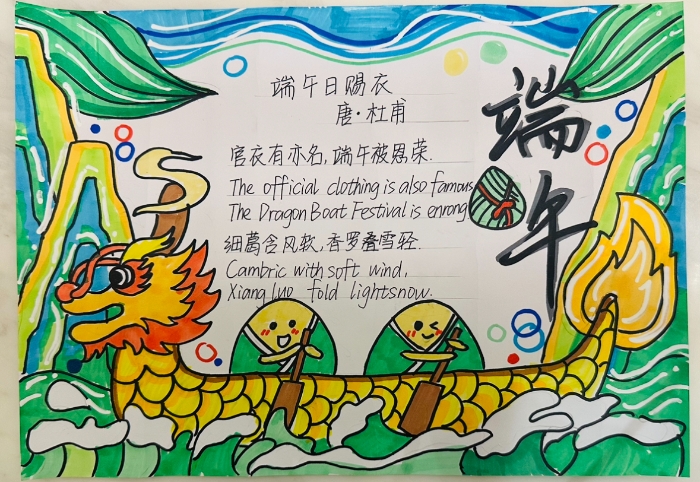 端午日赐衣
唐·杜甫
官衣有亦名,端午被恩荣.
The official clothing is also famous
The Dragon Boat Festival is enrong
细葛含风软,香罗叠雪轻.
Cambric with soft wind,
Xiang luo fold lightsnow.
端午